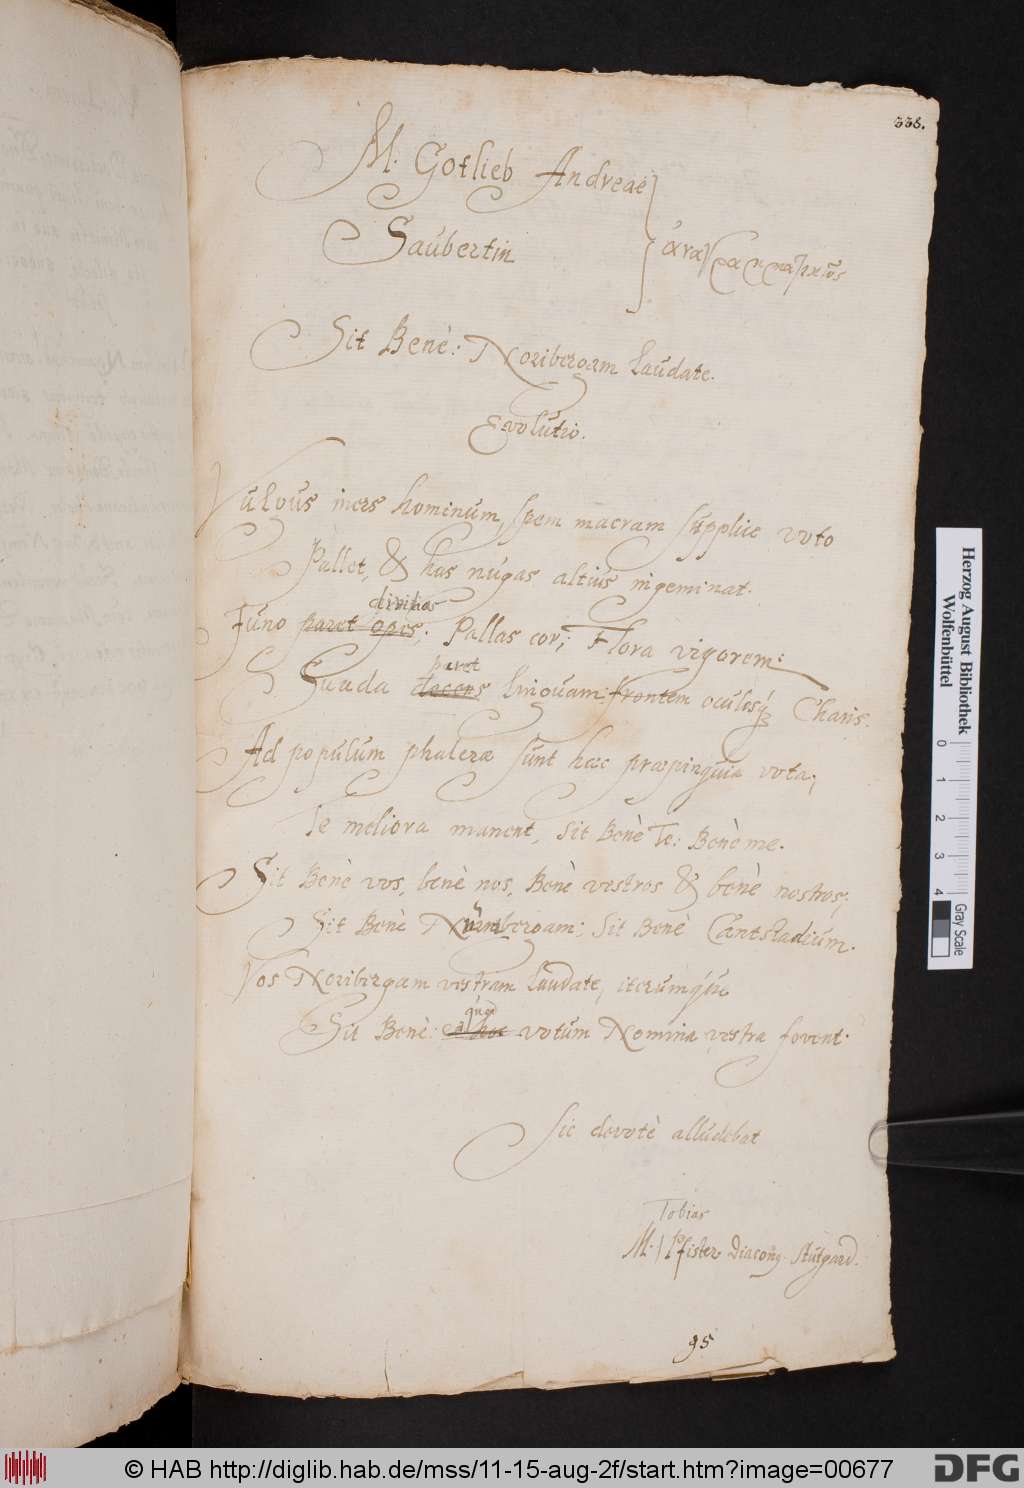 338.
M. Gotlieb Andreae
Saubertin } ἀναγραμματικῶς
Sit Benè: Noribergam laudate.
Evolutio.
Vulgus iners hominum, spem macram supplice voto
Pallet, & has nugas altius ingeminat.
divitias
Juno paret opes; Pallas cor; Flora vigorem;
paret
Suada linguam: frontem oculosq́ Charis.
Ad populum phalerae sunt haec praepinguia vota;
Te meliora manent, Sit Benè Te: Benè me.
Sit Benè vos, benè nos, Benè vestros & benè nostros;
Sit Benè Nürnbergam; Sit Benè Cantstadium.
Vos Noribergam vestram laudate, iterumq́ue
quod
Sit Benè: hoc votum Nomina vestra fovent.
Sic devotè alludebat
Tobias
M. | Pfister Diacon9 Stutgard.
95
Herzog August Bibliothek
Wolfenbüttel
0 1 2 3 4
Gray Scale
© HAB http://diglib.hab.de/mss/11-15-aug-2f/start.htm?image=00677
DFG